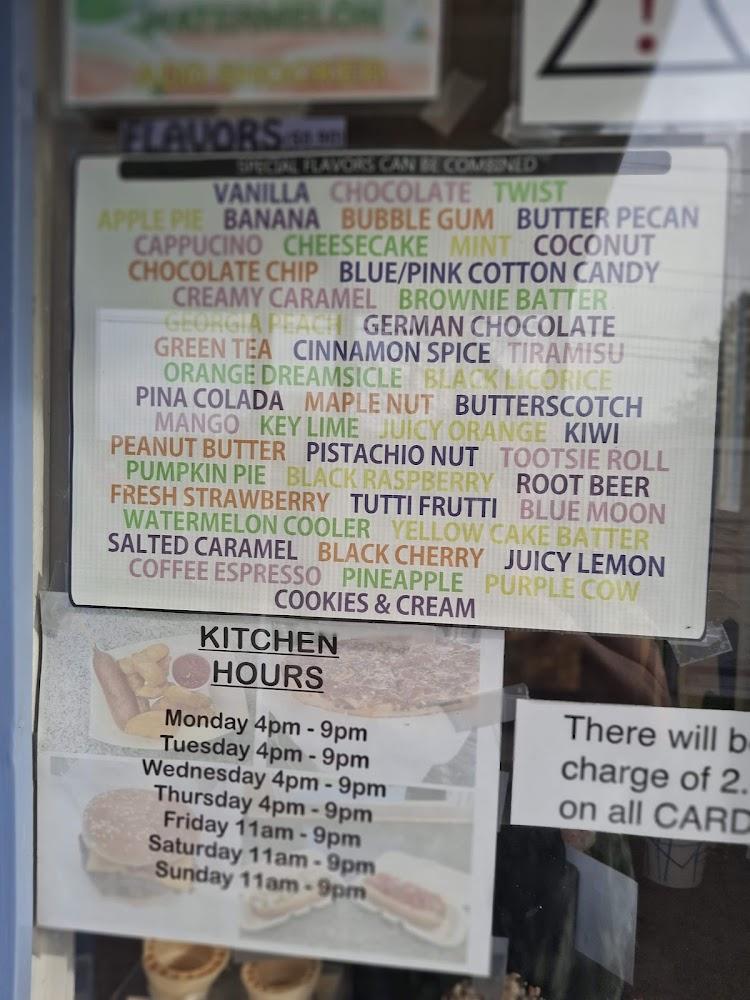 WATERMELON
FLAVORS
SPECIAL FLAVORS CAN BE COMBINED
VANILLA CHOCOLATE TWIST
APPLE PIE BANANA BUBBLE GUM BUTTER PECAN
CAPPUCINO CHEESECAKE MINT COCONUT
CHOCOLATE CHIP BLUE/PINK COTTON CANDY
CREAMY CARAMEL BROWNIE BATTER
GEORGIA PEACH GERMAN CHOCOLATE
GREEN TEA CINNAMON SPICE TIRAMISU
ORANGE DREAMSICLE BLACK LICORICE
PINA COLADA MAPLE NUT BUTTERSCOTCH
MANGO KEY LIME JUICY ORANGE KIWI
PEANUT BUTTER PISTACHIO NUT TOOTSIE ROLL
PUMPKIN PIE BLACK RASPBERRY ROOT BEER
FRESH STRAWBERRY TUTTI FRUTTI BLUE MOON
WATERMELON COOLER YELLOW CAKE BATTER
SALTED CARAMEL BLACK CHERRY JUICY LEMON
COFFEE ESPRESSO PINEAPPLE PURPLE COW
COOKIES & CREAM
KITCHEN
HOURS
Monday 4pm - 9pm
Tuesday 4pm - 9pm
Wednesday 4pm - 9pm
Thursday 4pm - 9pm
Friday 11am - 9pm
Saturday 11am - 9pm
Sunday 11am - 9pm
There will b
charge of 2.
on all CARD